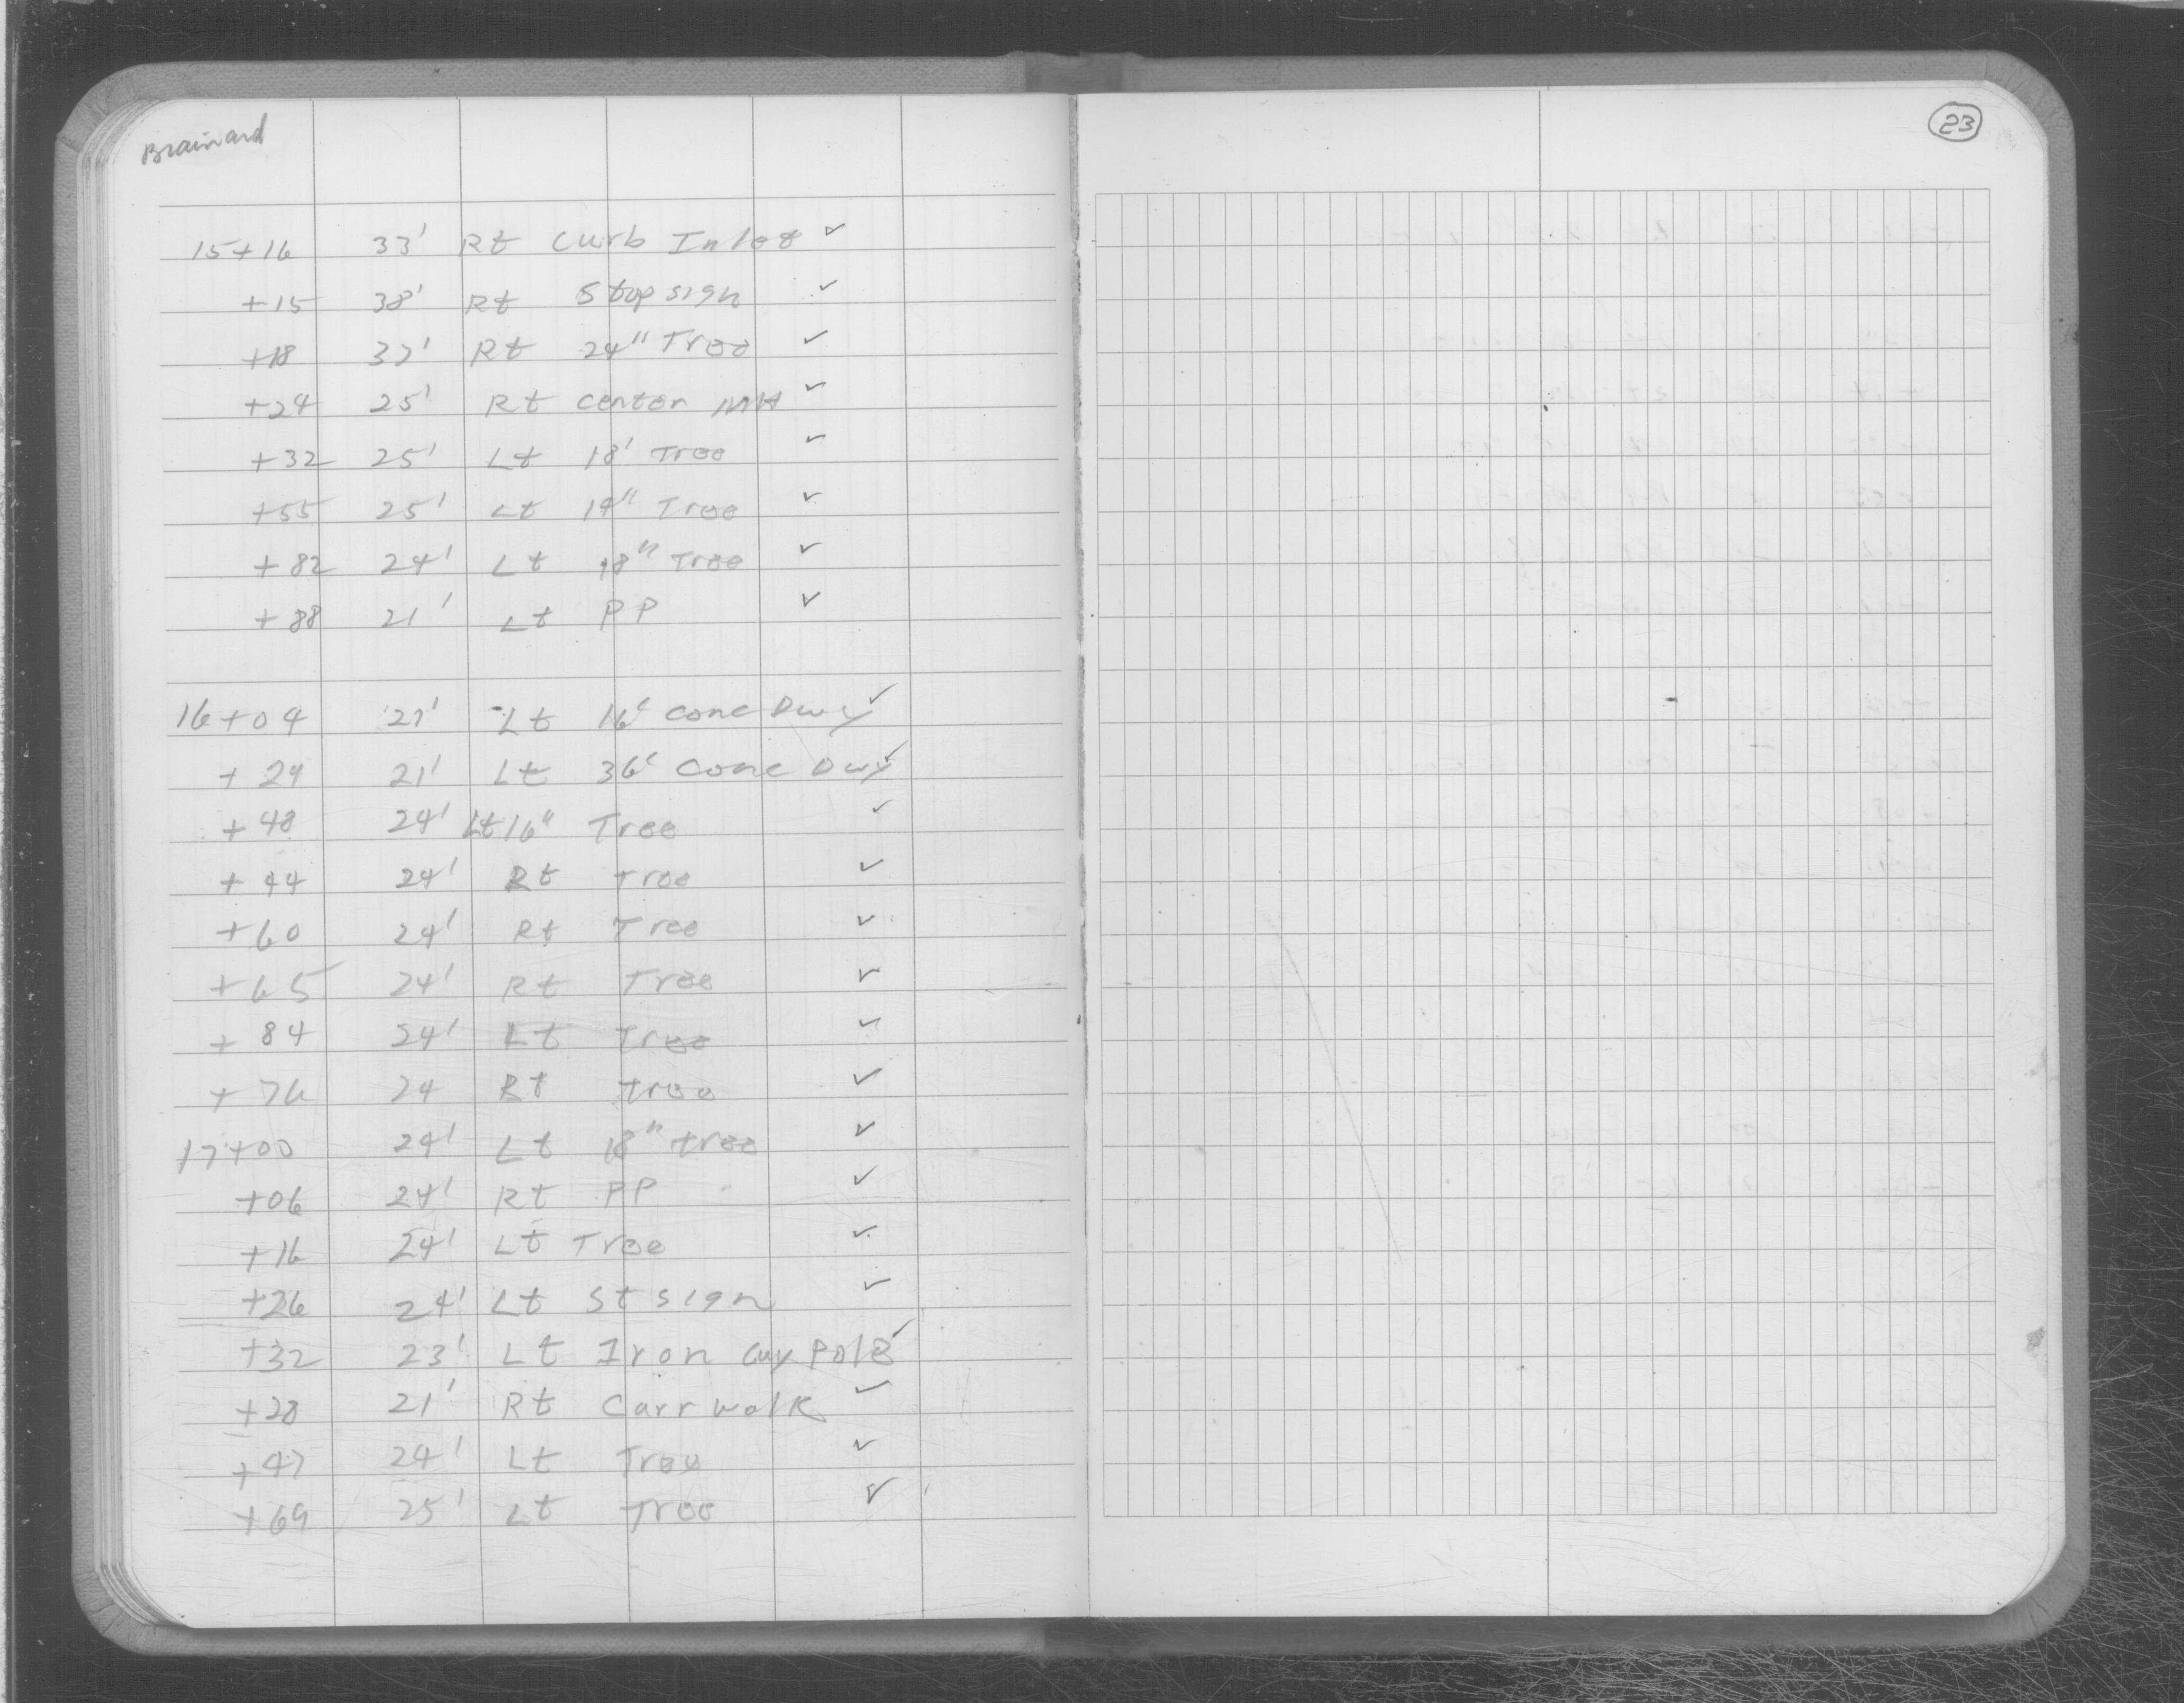 Brainard
23
15+16 33' Rt Curb Inlet ✓
+15 38' Rt Stop sign ✓
+18 37' Rt 24" Tree ✓
+24 25' Rt center MH ✓
+32 25' Lt 18' Tree ✓
+55 25' Lt 14" Tree ✓
+82 24' Lt 18" Tree ✓
+88 21' Lt PP ✓
16+04 21' Lt 16' conc Dwy ✓
+24 21' Lt 36' Conc Dwy ✓
+48 24' Lt 16" Tree ✓
+44 24' Rt Tree ✓
+60 24' Rt Tree ✓
+65 24' Rt Tree ✓
+84 24' Lt Tree ✓
+76 24 Rt tree ✓
17+00 24' Lt 18" tree ✓
+06 24' Rt PP ✓
+16 24' Lt Tree ✓
+26 24' Lt St sign ✓
+32 23' Lt Iron Guy Pole ✓
+28 21' Rt Carr walk ✓
+47 24' Lt Tree ✓
+69 25' Lt Tree ✓